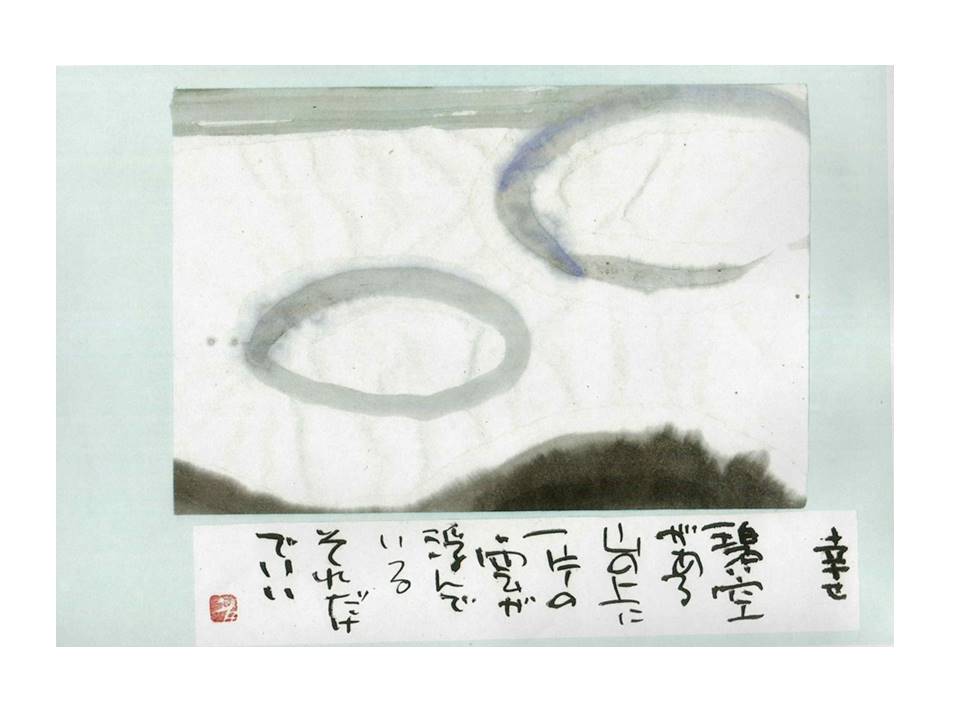 幸せ
碧空
がある
山の上に
一片の
雲が
浮んで
いる
それだけ
でいい